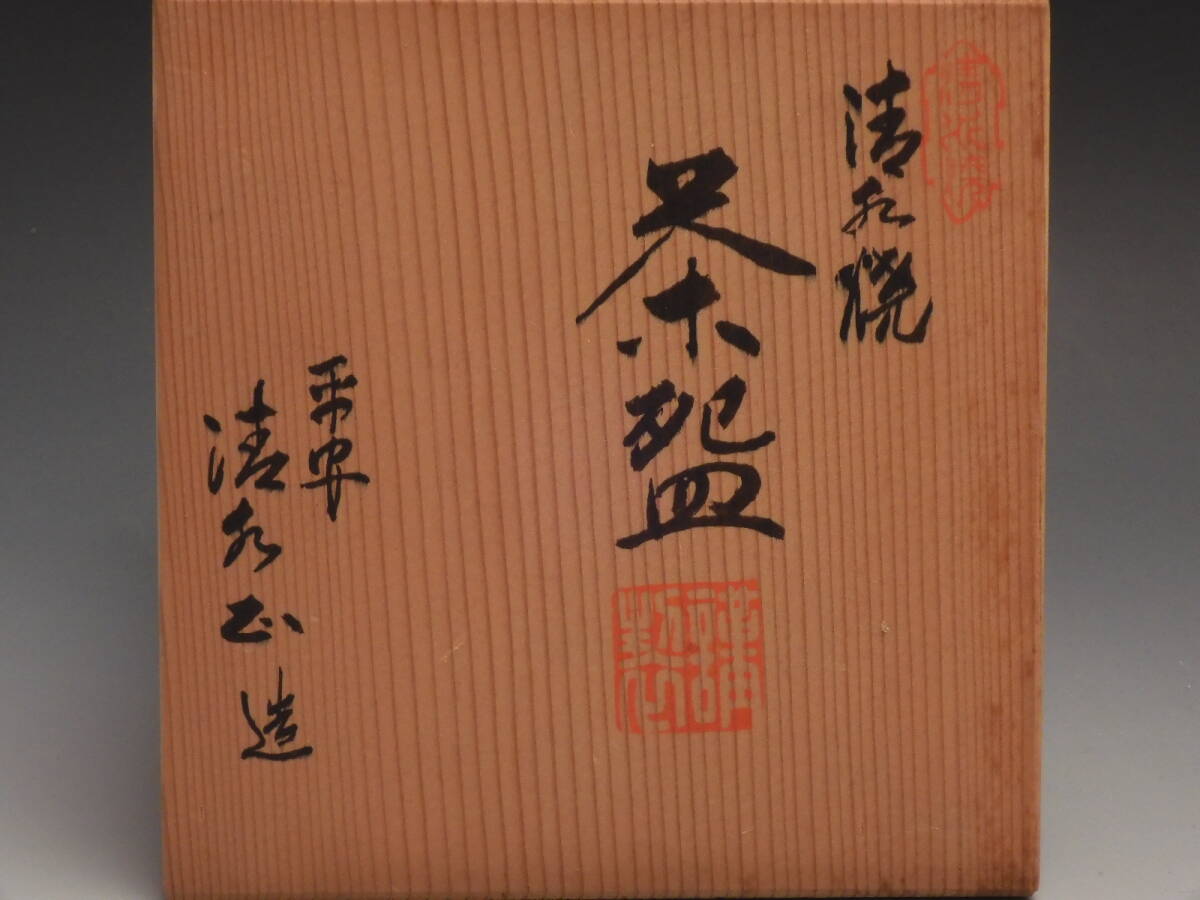 清水焼
茶盌
謹製
平安
清水正造